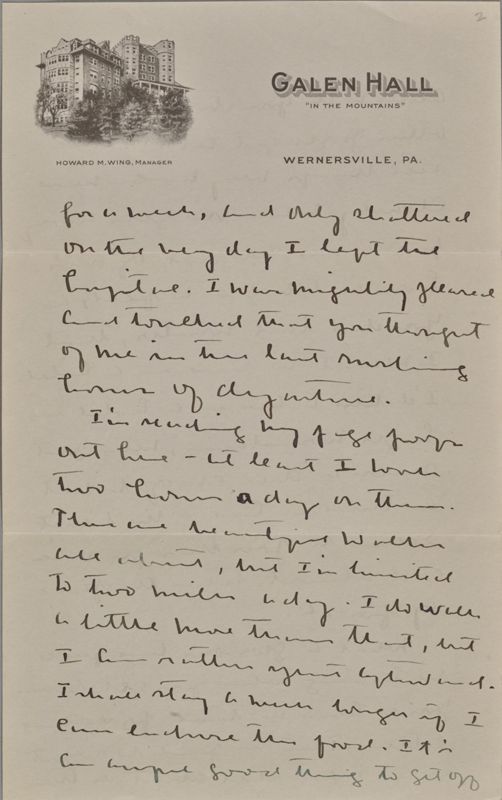 2
GALEN HALL
"IN THE MOUNTAINS"
HOWARD M. WING, MANAGER
WERNERSVILLE, PA.
for a week, and only shattered
on the very day I left the
hospital. I was mightily pleased
and touched that you thought
of me in the last rushing
hours of departure.
I'm reading my page proofs
out here - at least I work
two hours a day on them.
There are beautiful walks
all about, but I'm limited
to two miles a day. I do walk
a little more than that, but
I am rather spent afterward.
I shall stay a week longer if I
can endure the food. It's
an awful good thing to get off